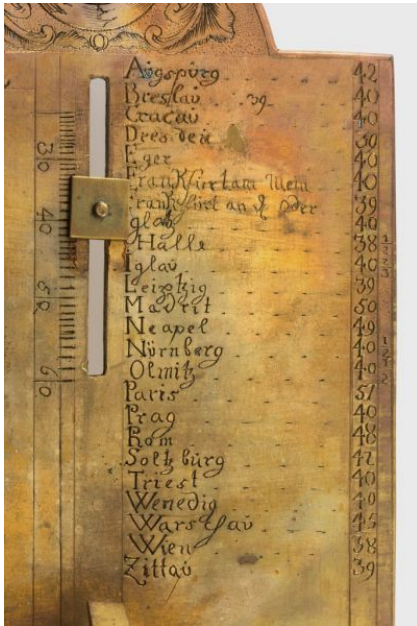 Augspurg 42
Breslau 39 40
Cracau 40
Dresden 39
Eger 40
Franckfurt am Mein 40
Franckfurt an d Oder 39
glatz 40
Halle 38 1/2
Iglau 40
Leiptzig 39
Madrit 50
Neapel 49
Nürnberg 40 1/2
Olmitz 40
Paris 51
Prag 40
Rom 48
Soltzburg 42
Triest 40
Wenedig 40
Warschau 45
Wien 38
Zittau 39
30
40
50
60